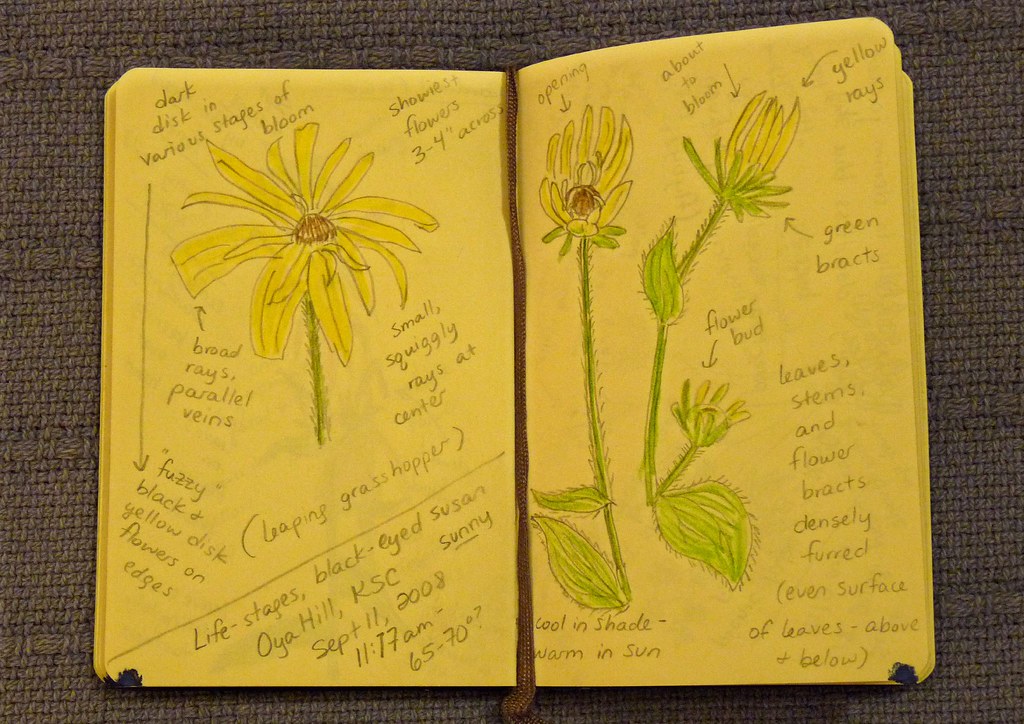 dark
disk in
various stages of
bloom
showiest
flowers
3-4" across
broad
rays,
parallel
veins
small,
squiggly
rays at
center
"fuzzy"
black &
yellow disk
flowers on
edges
(leaping grasshopper)
Life-stages, black-eyed susan
Oya Hill, KSC
sunny
Sept 11, 2008
11:17am-
65-70°?
opening
about
to
bloom
yellow
rays
green
bracts
flower
bud
leaves,
stems,
and
flower
bracts
densely
furred
(even surface
of leaves - above
& below)
cool in shade-
warm in sun